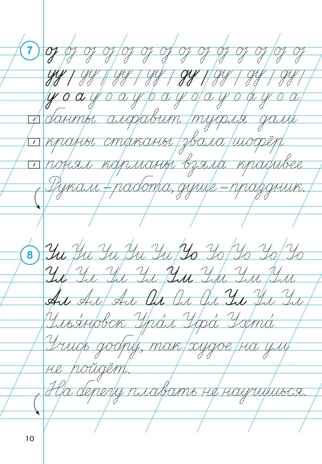 7 д д д д д д д д д д д д д д
уу / уу / уу / уу / ду / ду / ду / ду /
у о а у о а у о а у о а у о а у о а
банты алфавит туфля дали
краны стаканы звала шофёр
понял карманы взяла красивее
Рукам – работа, душе – праздник.
8 Уи Уи Уи Уи Уи Уо Уо Уо Уо Уо
Ул Ул Ул Ул Ум Ум Ум Ум
Ал Ал Ал Ол Ол Ол Ул Ул Ул
Улья́новск Ура́л Уфа́ Ухта́
Учись добру, так худое на ум
не пойдёт.
На берегу плавать не научишься.
10